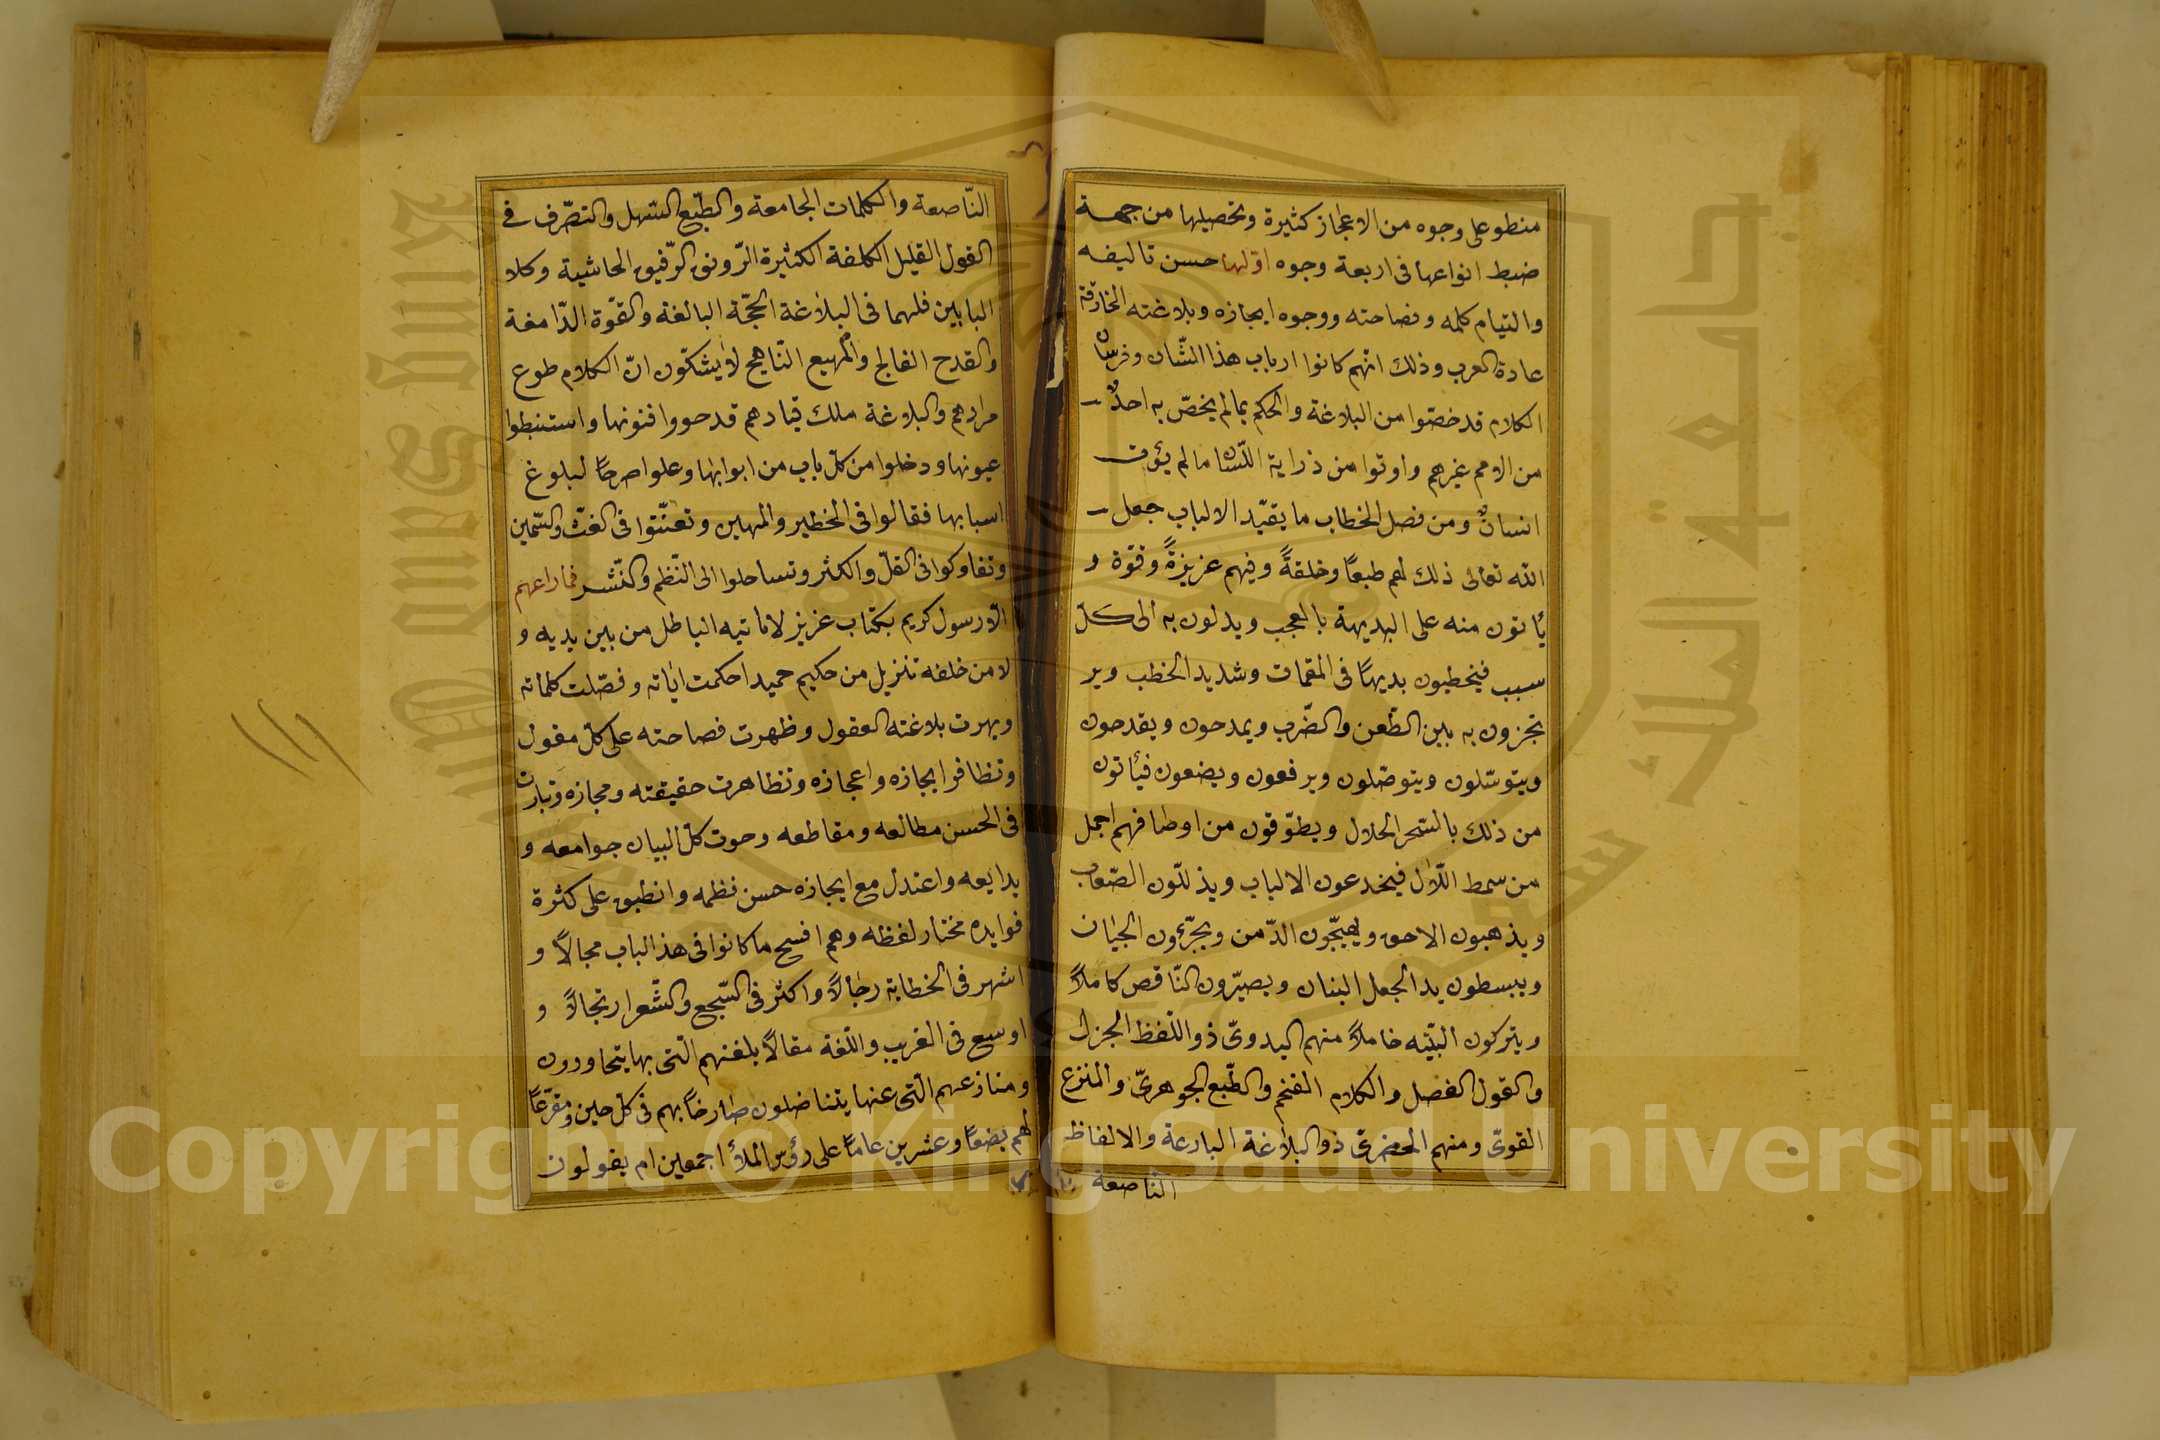 منطو على وجوه من الاعجاز كثيرة وتحصيلها من جهة
ضبط انواعها فى اربعة وجوه اوّلها حسن تاليفه
والتيام كلمه وفصاحته ووجوه ايجازه وبلاغته الخارقة
عادة العرب وذلك انّهم كانوا ارباب هذا الشّان وفرسان
الكلام قد خصّوا من البلاغة والحكم بمالم يخصّ به احدٌ
من الامم غيرهم واوتوا من ذراية اللّسان مالم يؤت
انسانٌ ومن فصل الخطاب ما يقيّد الالباب جعل
الله تعالى ذلك لهم طبعًا وخلقةً وفيهم غريزةً وقوّة و
يأتون منه على البديهة بالعجب ويدلون به الى كلّ
سبب فيخطبون بديهًا فى المقمات وشديد الخطب وير
تجزون به بين الطّعن والضّرب ويمدحون ويقدحون
ويتوسّلون ويتوصّلون ويرفعون ويضعون فيأتون
من ذلك بالسّحر الحلال ويطوّقون من اوصافهم اجمل
من سمط اللّال فيخدعون الالباب ويذلّلون الصّعاب
ويذهبون الاحن ويهيّجون الدّمن ويجرّءون الجبان
ويبسطون يد الجعل البنان ويصيّرون النّاقص كاملاً
ويتركون النّبيه خاملاً منهم البدوىّ ذو اللّفظ الجزل
والقول الفصل والكلام الفخم والطّبع الجوهرىّ والمنزع
القوىّ ومنهم الحضرىّ ذو البلاغة البارعة والالفاظ
الناصعة
النّاصعة والكلمات الجامعة والطّبع السّهل والتصّرف فى
القول القليل الكلفة الكثيرة الرّونق الرّقيق الحاشية وكلا
البابين فلهما فى البلاغة الحجّة البالغة والقوّة الدّامغة
والقدح الفالج والمهيع النّاهج لا يشكّون انّ الكلام طوع
مرادهم والبلاغة ملك قيادهم قد حووا فنونها واستنبطوا
عيونها ودخلوا من كلّ باب من ابوابها وعلوا صرحًا لبلوغ
اسبابها فقالوا فى الخطير والمهين وتعنّتوا فى الغثّ والسّمين
وتفاوكوا فى القلّ والكثر وتساجلوا الى النّظم والنّثر فما راعهم
الّا رسول كريم بكتاب عزيز لا ياتيه الباطل من بين يديه و
لا من خلفه تنزيل من حكيم حميد احكمت اياته وفصّلت كلماته
وبهرت بلاغته العقول وظهرت فصاحته على كلّ مقول
وتظافر ايجازه واعجازه وتظاهرت حقيقته ومجازه وتبارت
فى الحسن مطالعه ومقاطعه وحوت كلّ البيان جوامعه و
بدايعه واعتدل مع ايجازه حسن نظمه وانطبق على كثرة
فوايده مختار لفظه وهم افسح ما كانوا فى هذا الباب مجالاً و
اشهر فى الخطابة رجالاً واكثر فى السّجع والشّعر ارتجالاً و
اوسع فى الغريب واللّغة مقالاً بلغتهم الّتى بها يتحاورون
ومنازعهم الّتى عنها يتناضلون صارخًا بهم فى كلّ حين ومقرّعًا
لهم بضعًا وعشرين عامًا على رؤس الملأ اجمعين ام يقولون
Copyright © King Saud University
جامعة الملك سعود
King Saud University